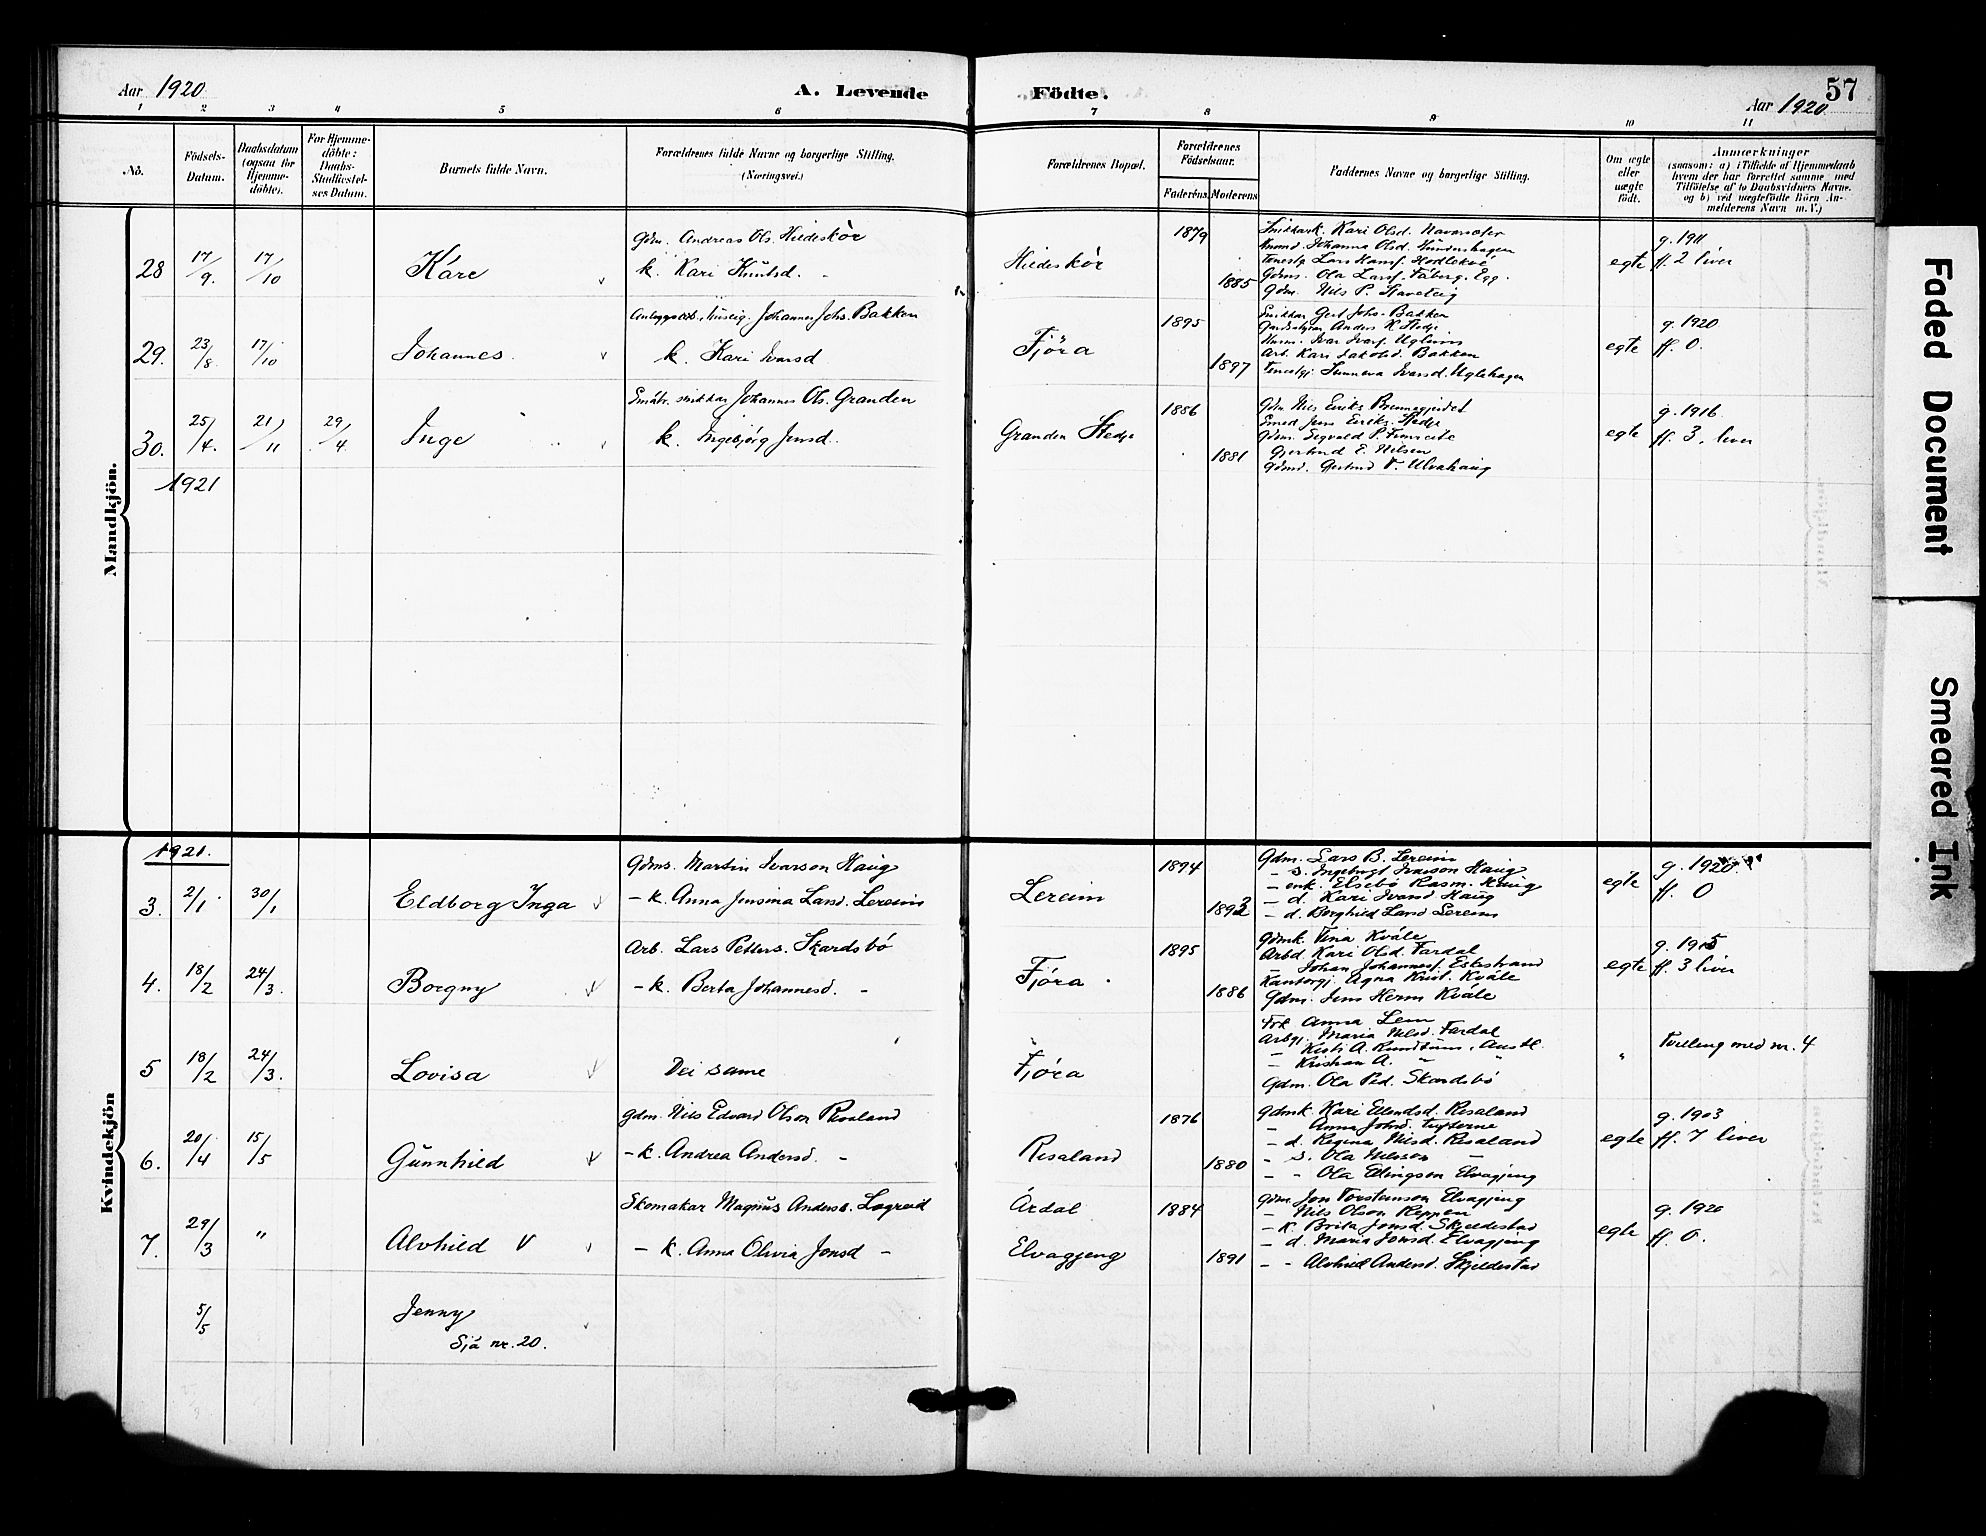 Aar 1920
A. Levende Födte.
57
Aar 1920
1 2 3 4 5 6 7 8 9 10 11
No.
Födsels-Datum.
Daabsdatum (ogsaa for Hjemme-döbte).
For Hjemme-döbte: Daabs-Stadfæstel-ses Datum.
Barnets fulde Navn.
Forældrenes fulde Navne og borgerlige Stilling.
(Næringsvei.)
Forældrenes Bopæl.
Forældrenes Födselsaar.
Faderens. Moderens
Faddernes Navne og borgerlige Stilling.
Om ægte eller uægte födt.
Anmærkninger
(saasom: a) i Tilfælde af Hjemmedaab hvem der har forrettet samme med Tilföielse af to Daabsvidners Navne. og b) ved uægtefödte Börn An-melderens Navn m. V.)
Mandkjön.
28 17/9. 17/10 Kåre
Gdm. Andreas Ols. Hieleskör
k. Kari Knutsd. -
Hieleskör
1879
1885
Kari Olsd.
Johanna Olsd.
Gdms. Ola Larss. Fåberg. Egg.
Gdm. Nils P. Staveteig
egte
g. 1911
ff. 2 liver
29. 23/8 17/10 Johannes
Johannes Johs. Bakken
k. Kari Ivarsd
Fjöra
1895
1897
Snikkar Gert Johs. Bakken
Anders K. Stedje
Arb. Kari Jakobsd. Bakken
Sunneva Ivarsd. Uglehagen
egte
g. 1920
ff. 0.
30. 25/4. 21/11 29/4 Inge
Småbr. snikkar Johannes Ols. Granden
k. Ingebjörg Jensd.
Granden Stedje
1886
1881
Gdm. Nils Eiriks
Smed Jens Eiriks. Stedje
Gdm. Segvald P. Fimreite
Gjertrud E. Nilsen
Gdmd. Gjertrud T. Ulvahaug
egte
g. 1916
ff. 3, liver
1921
Kvindekjön
1921.
3. 2/1 30/1 Eldborg Inga
Gdms. Martin Ivarson Haug
- k. Anna Jensina Larsd. Lereim
Lereim
1894
1893
Gdm. Lars B. Lereim
- s. Ingebrigt Ivarson Haug
- enk. Elsebö Rasm. Haug
- d. Kari Ivarsd Haug
- d. Borghild Larsd Lereim
egte
g. 1920.
ff. 0
4. 18/2 24/3. Borgny
Arb. Lars Petters. Skardsbö
- k. Berta Johannesd. -
Fjöra
1895
1886
Gdmk. Tina Kvåle
Arbd. Kari Olsd. Fardal
Johan Johanness. Eskestrand
Agna Krist. Kvåle
Gdm. Jens Herm Kvåle
egte
g. 1915
ff. 3 liver
5 18/2 24/3. Lovisa
Dei same
Fjöra
Frk Anna Lem
Arbgj. Maria Nilsd. Fardal
- Kristi A. Rundtuns, Austl.
- Kristian A. " "
Gdm. Ola Ped. Skardsbö
"
Tvilling med nr. 4
6. 20/4 15/5 Gunnhild
Gdm. Nils Edvard Olson Risaland
- k. Andrea Andersd. -
Risaland
1876
1880
Gdmk. Kari Ellendsd. Risaland
- Anna Johsd. Tufterne
- d. Regina Nilsd. Risaland
- s. Ola Nilsson -
- - Ola Ellingson Elvagjeng
egte
g. 1903
ff. 7 liver
7. 29/3 " Alvhild V
Skomakar Magnus Anderss. Lögreid
- k. Anna Olivia Jonsd -
Årdal
Elvagjeng
1884
1891
Gdm. Jon Torsteinson Elvagjeng
- Nils Olson Reppen
- k. Brita Jonsd. Skjeldestad
- d. Maria Jonsd. Elvagjeng
- - Alvhild Andersd. Skjeldestad
egte
g. 1920
ff. 0.
5/5 Jenny
Sjå nr. 20.
Faded Document
Smeared Ink